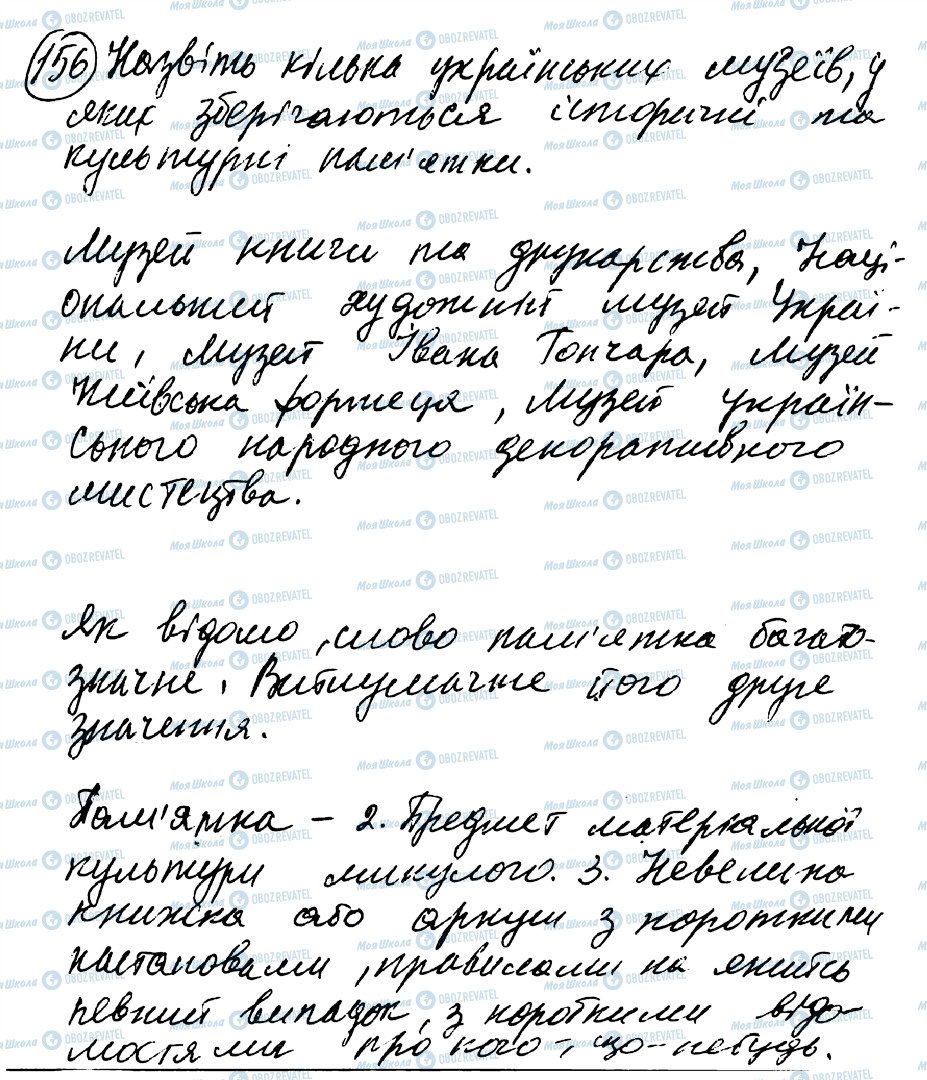 156 Назвіть кілька українських музеїв, у
яких зберігаються історичні та
культурні пам'ятки.
Музей книги та друкарства, Наці-
ональний художній музей Украї-
ни, Музей Івана Гончара, Музей
Київська фортеця, Музей україн-
ського народного декоративного
мистецтва.
Як відомо, слово пам'ятка багато-
значне. Витлумачте його друге
значення.
Пам'ятка – 2. Предмет матеріальної
культури минулого. 3. Невелика
книжка або аркуш з короткими
настановами, правилами на якийсь
певний випадок, з короткими відо-
мостями про кого-, що-небудь.